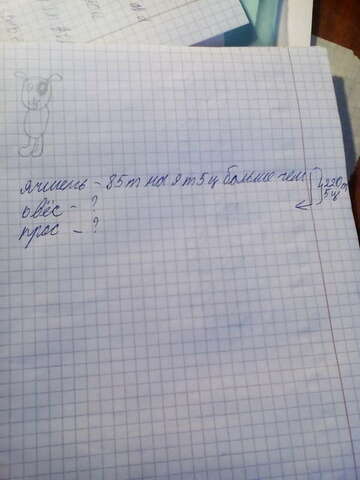 ячмень - 85 т на 9 т 5 ц больше чем 220 т
5 ц
овёс - ?
прос - ?